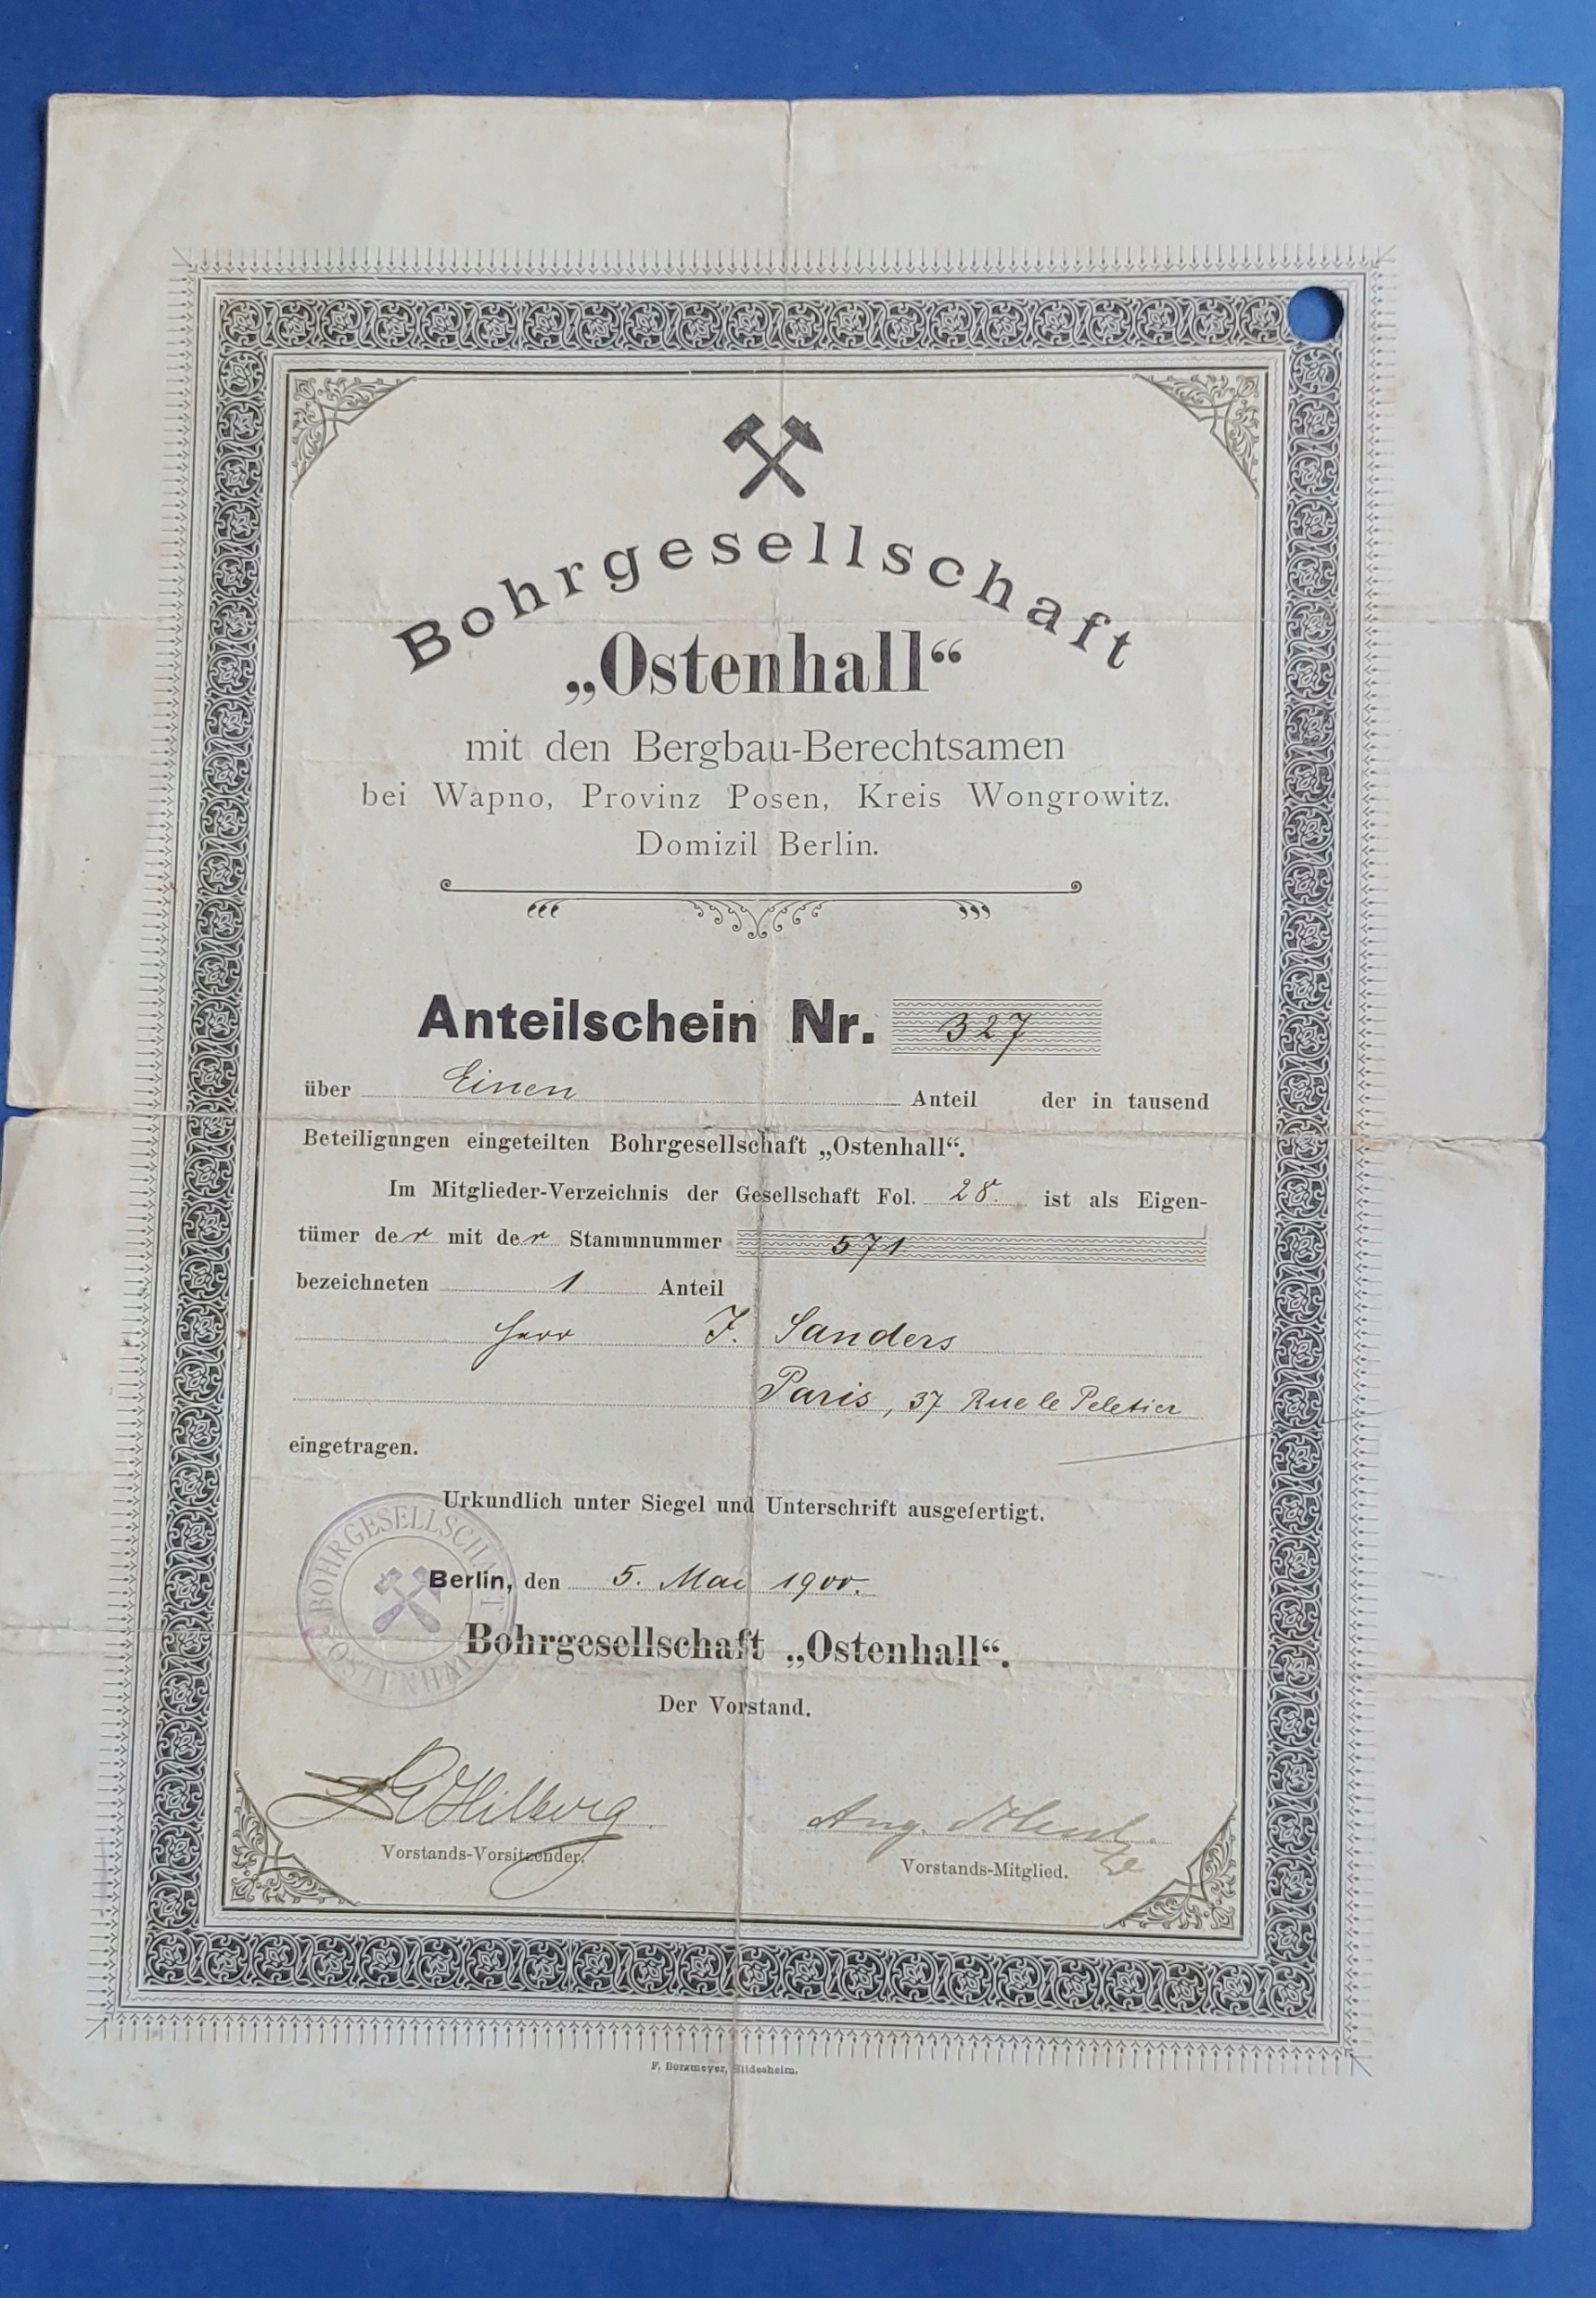 Bohrgesellschaft
„Ostenhall“
mit den Bergbau-Berechtsamen
bei Wapno, Provinz Posen, Kreis Wongrowitz.
Domizil Berlin.
Anteilschein Nr. 327
über Einen Anteil der in tausend
Beteiligungen eingeteilten Bohrgesellschaft „Ostenhall“.
Im Mitglieder-Verzeichnis der Gesellschaft Fol. 28. ist als Eigen-
tümer der mit der Stammnummer 571
bezeichneten 1 Anteil
Herr J. Sanders
Paris, 37 Rue le Peletier
eingetragen.
Urkundlich unter Siegel und Unterschrift ausgefertigt.
BOHRGESELLSCHAFT
OSTENHALL
Berlin, den 5. Mai 1900.
Bohrgesellschaft „Ostenhall“.
Der Vorstand.
Hilberg Aug.
Vorstands-Vorsitzender. Vorstands-Mitglied.
F. Borgmeyer, Hildesheim.